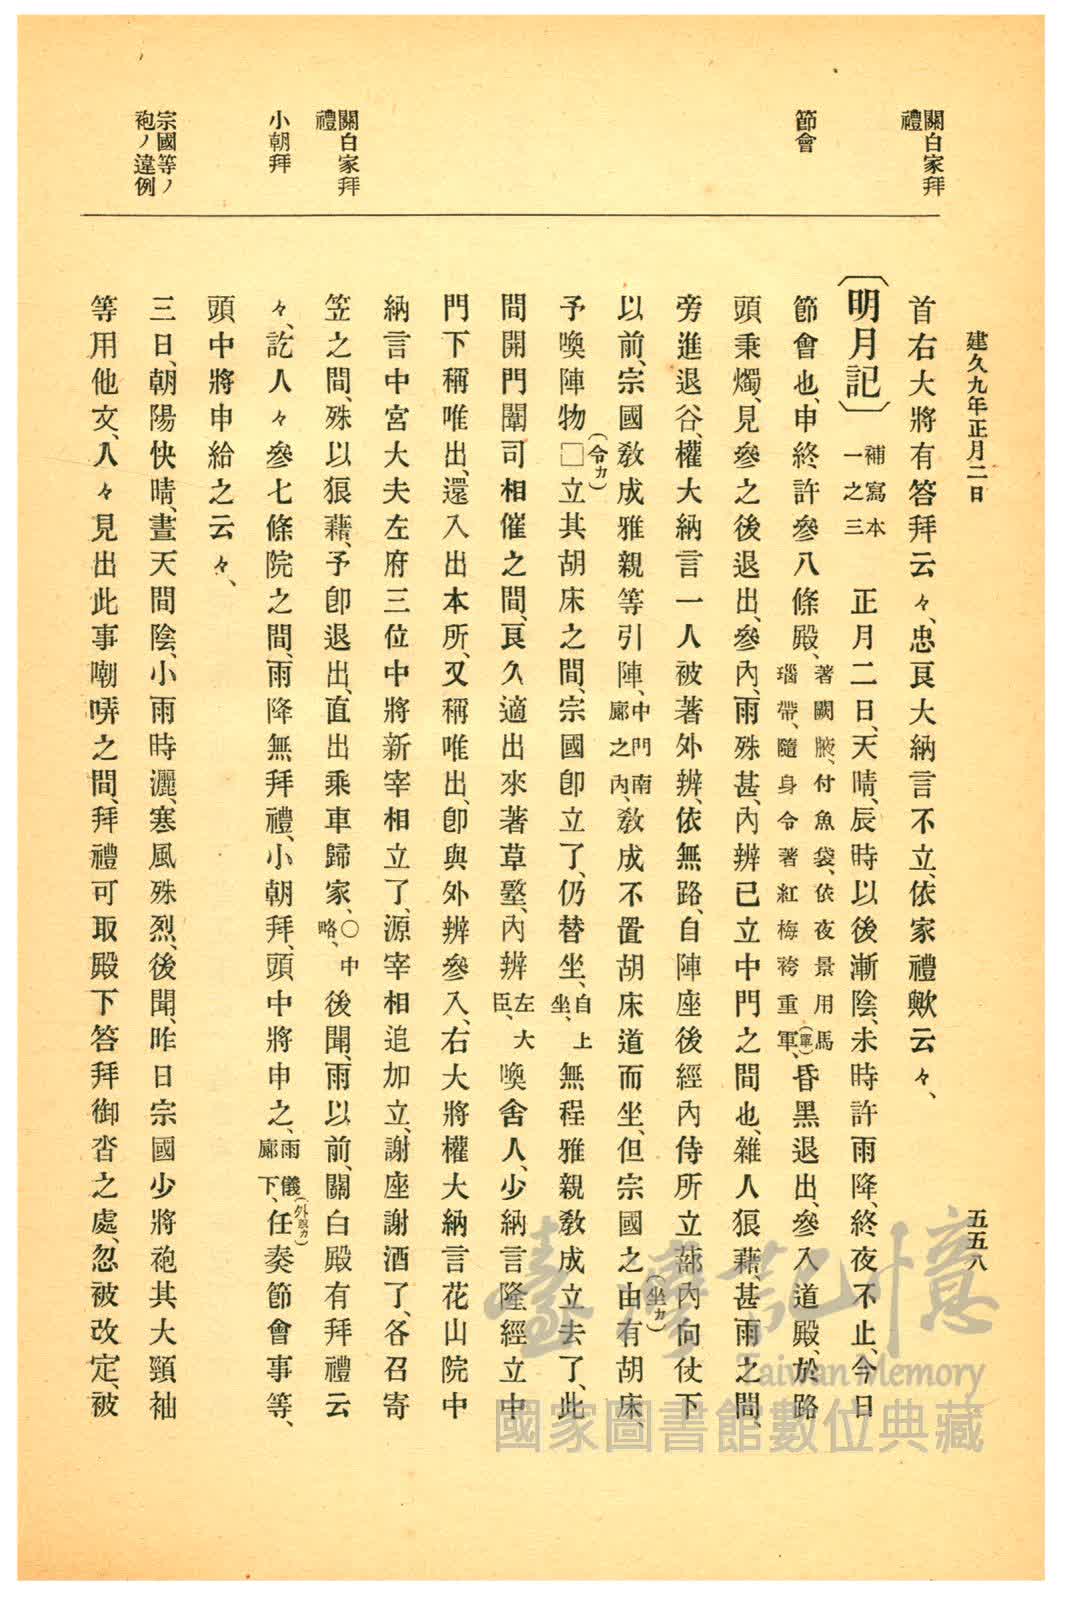 建久九年正月二日
五五八
關白家拜禮
節會
關白家拜禮
小朝拜
宗國等ノ袍ノ違例
首右大將有答拜云々、忠良大納言不立、依家禮歟云々、
〔明月記〕補寫本一之三 正月二日、天晴、辰時以後漸陰、未時許雨降、終夜不止、今日
節會也、申終許參八條殿、著闕腋、付魚袋、依夜景用馬瑙帶、隨身令著紅梅袴重軍(單)、昏黑退出、參入道殿、於路
頭秉燭、見參之後退出、參內、雨殊甚、內辨已立中門之間也、雜人狼藉、甚雨之間、
旁進退谷、權大納言一人被著外辨、依無路、自陣座後經內侍所立蔀內向仗下
以前、宗國敎成雅親等引陣、中門南廊之內、敎成不置胡床道而坐、但宗國之由(坐カ)有胡床、
予喚陣物□(令カ)立其胡床之間、宗國卽立了、仍替坐、自上坐、無程雅親敎成立去了、此
間開門闈司相催之間、良久適出來著草墪、內辨左大臣、喚舍人、少納言隆經立中
門下稱唯出、還入出本所、又稱唯出、卽與外辨參入、右大將權大納言花山院中
納言中宮大夫左府三位中將新宰相立了、源宰相追加立、謝座謝酒了、各召寄
笠之間、殊以狼藉、予卽退出、直出乘車歸家、○中略、後聞、雨以前、關白殿有拜禮云
々、訖人々參七條院之間、雨降無拜禮、小朝拜、頭中將申之、雨儀廊下、(外脫カ)任奏節會事等、
頭中將申給之云々、
三日、朝陽快晴、晝天間陰、小雨時灑、寒風殊烈、後聞、昨日宗國少將袍其大頸袖
等用他文、人々見出此事嘲哢之間、拜禮可取殿下答拜御沓之處、忽被改定、被
臺灣記憶
Taiwan Memory
國家圖書館數位典藏